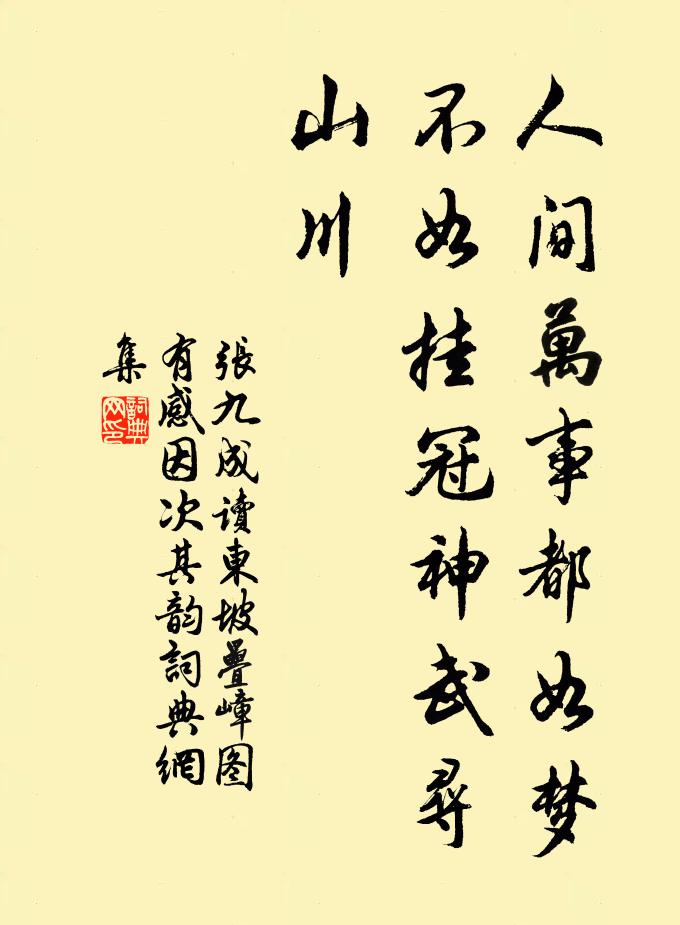 人间萬事都如梦
不如挂冠神武尋
山川
張九成讀東坡疊嶂图
有感因次其韵詞典網
集
詞典
网印